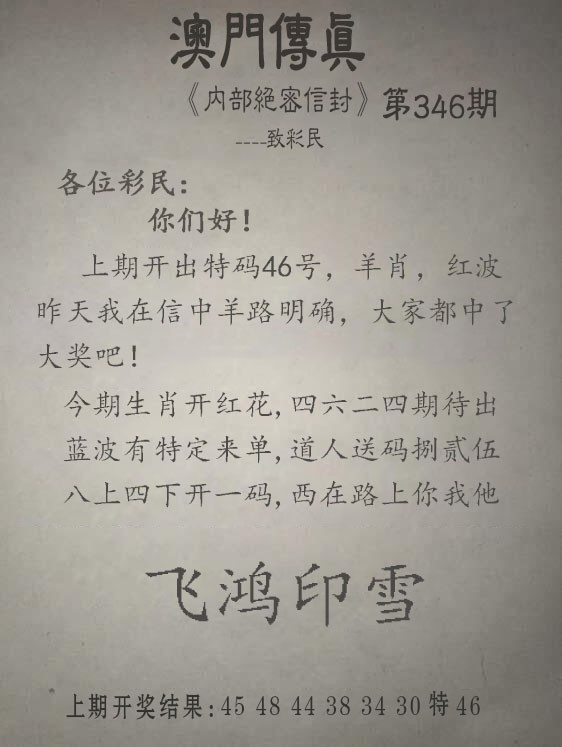 澳門傳眞
《内部絕密信封》第346期
----致彩民
各位彩民：
你们好！
上期开出特码46号，羊肖，红波
昨天我在信中羊路明确，大家都中了
大奖吧！
今期生肖开红花,四六二四期待出
蓝波有特定来单,道人送码捌贰伍
八上四下开一码,西在路上你我他
飞鸿印雪
上期开奖结果:45 48 44 38 34 30 特 46